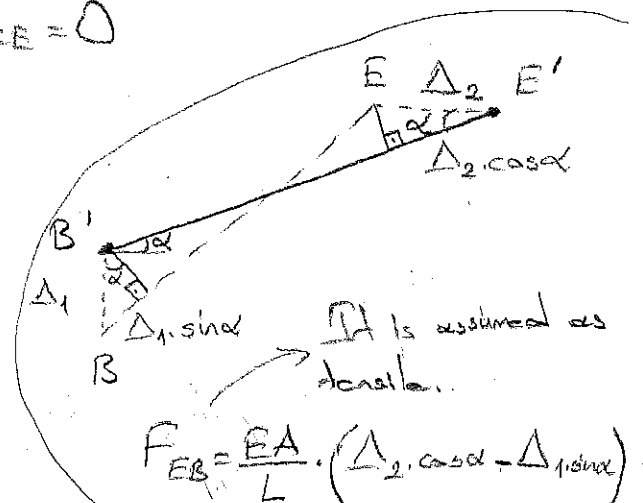 EE = 0
E Δ₂ E'
α
Δ₂.cosα
B' α
α
Δ₁
Δ₁.sinα
B
It is assumed as
tensile.
F_EB = EA/L . (Δ₂.cosα - Δ₁.sinα)